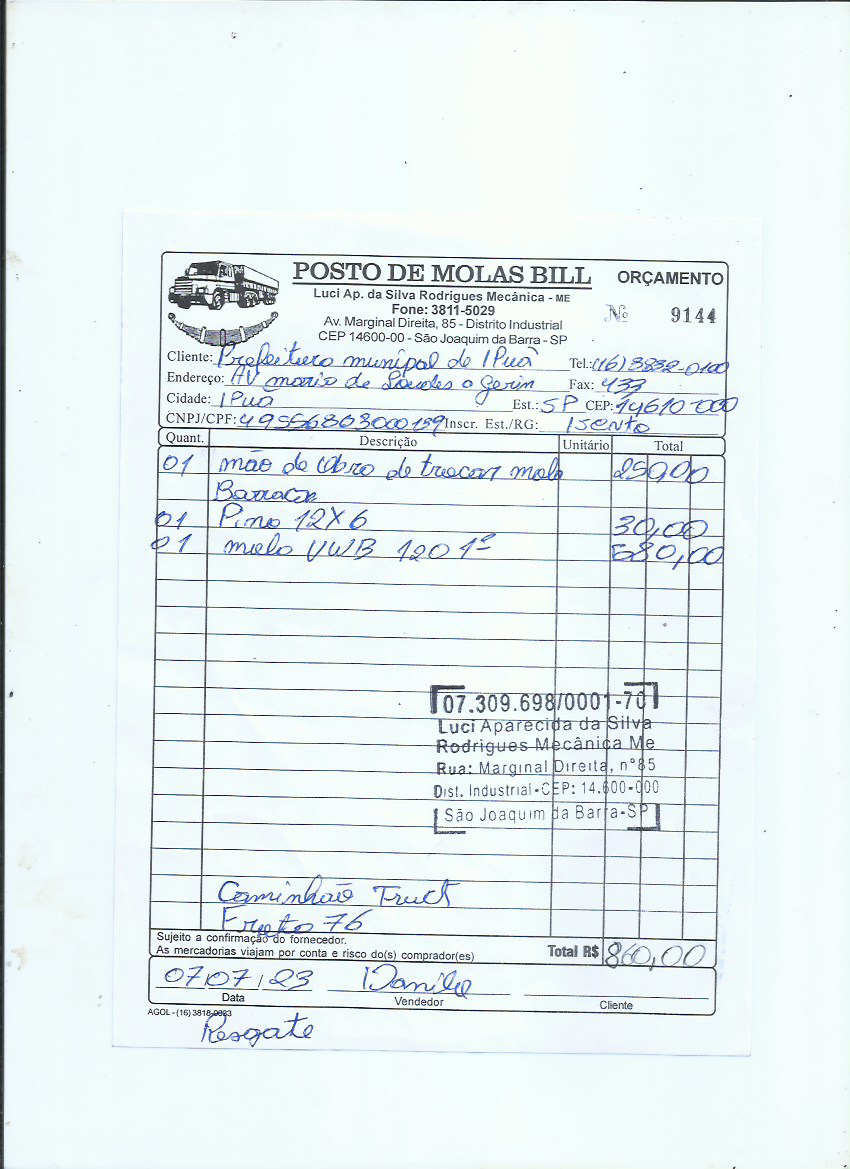 POSTO DE MOLAS BILL
ORÇAMENTO
Luci Ap. da Silva Rodrigues Mecânica - ME
Fone: 3811-5029
Nº 9144
Av. Marginal Direita, 85 - Distrito Industrial
CEP 14600-00 - São Joaquim da Barra - SP
Cliente: Prefeitura munipal de IPuã Tel.: (16) 3832-0100
Endereço: AV maria de Lourdes a Gerin Fax: 433
Cidade: IPuã Est.: SP CEP: 14610-000
CNPJ/CPF: 49556863000159 Inscr. Est./RG: Isento
Quant. Descrição Unitário Total
01 mão de obra de trocar mola 250,00
01 Pino 12X6 30,00
01 mola VWB 120 1ª 580,00
07.309.698/0001-70
Luci Aparecida da Silva
Rodrigues Mecânica Me
Rua: Marginal Direita, nº 85
Dist. Industrial-CEP: 14.600-000
São Joaquim da Barra-SP
Caminhão Truct
Frota 76
Sujeito a confirmação do fornecedor.
As mercadorias viajam por conta e risco do(s) comprador(es)
Total R$ 860,00
07/07/23 Danilo
Data Vendedor Cliente
AGOL - (16) 3818-0083
Resgate